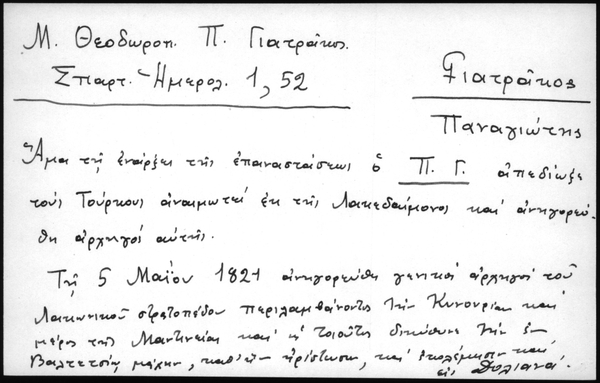 Μ. Θεοδωροπ. Π. Γιατρᾶκος.
Σπαρτ. Ἡμερολ. 1, 52
Γιατρᾶκος
Παναγιώτης
Ἅμα τῇ ἐνάρξει τῆς ἐπαναστάσεως ὁ Π. Γ. ἀπεδίωξε
τοὺς Τούρκους ἀναιμωτεί ἐκ τῆς Λακεδαίμονος καί ἀνηγορεύ-
θη ἀρχηγός αὐτῆς.
Τῇ 5 Μαΐου 1821 ἀνηγορεύθη γενικός ἀρχηγός τοῦ
Λακωνικοῦ στρατοπέδου περιλαμβάνοντος τήν Κυνουρίαν καί
μέρος τῆς Μαντινείας καί τοιοῦτος διηύθυνε τήν ἐν
Βαλτετσίῳ μάχην, καθ' ἥν ἠρίστευσε, καί ἐπολέμησεν καί
εἰς Δολιανά.